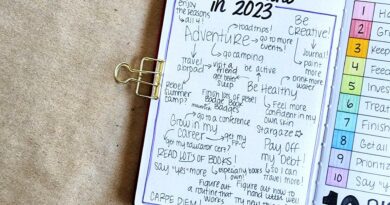 in 2023
enjoy the seasons - all 4!
Be Creative!
road trips!
Adventure
go to more events!
journal!
paint more
go camping
travel abroad
visit a friend
be active
drink more water
get over sleep
Be Healthy
Rebel Summer Camp
Finish lots of rebel Badge Book Badges
Feel more confident in my own skin
go to a conference
Stargaze
Grow in my career
get my
Pay off my Debt!
get my educator cers?
READ LOTS OF BOOKS!
so I can travel more!
Say "yes" more
especially ones I own!
Figure out a routine that works
Figure out how to hand letter well
CARPE DIEM!
1 Have
2 Grow
3 Keep
4 Feed
5 Inves
6 Treat
7 Finish
8 Getai
9 Priorit
10 Say "
10